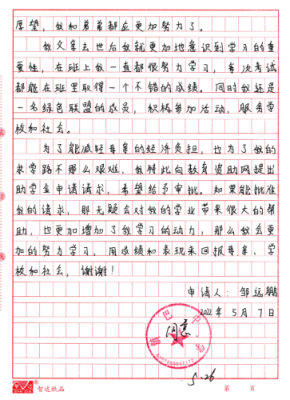 愿望，我和弟弟都应更加努力了。
我父亲去世后我就更加地意识到学习的重
要性，在班上我一直都很努力学习，每次考试
都能在班里取得一个不错的成绩。同时我还是
一名绿色联盟的成员，积极参加活动，服务学
校和社会。
为了能减轻母亲的经济负担，也为了我的
求学路不那么艰难，我特此向教育资助网提出
助学金申请请求，希望给予审批。如果能批准
我的请求，那无疑会对我的学业带来很大的帮
助，也更加增加了我学习的动力，那么我会更
加的努力学习，用成绩和表现来回报母亲、学
校和社会，谢谢！
申请人：邹远鹏
5月7日
同意
5.26
智远纸品
第 页